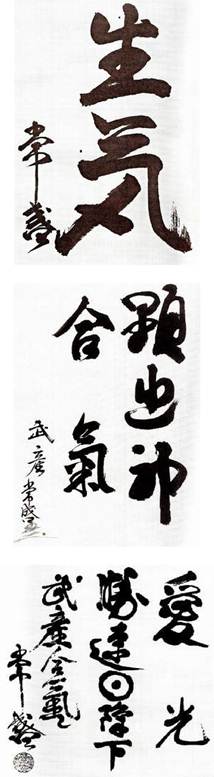 生気
常盛
顕 神
合氣
武産 常盛
愛光
勝速⦿降下
武産合氣
常盛